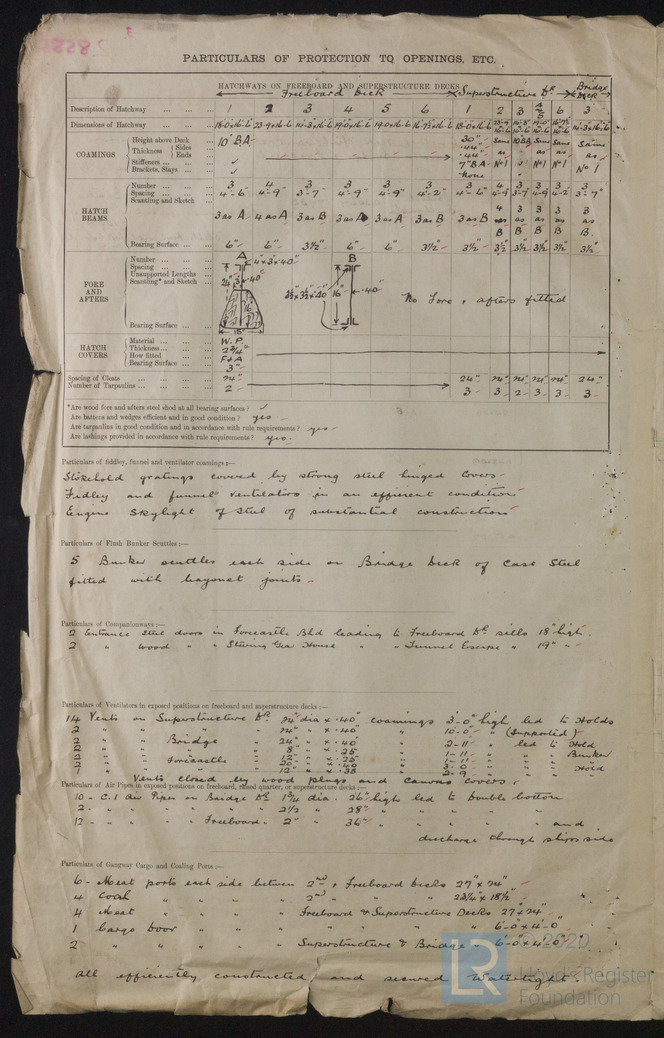 PARTICULARS OF PROTECTION TO OPENINGS, ETC.
HATCHWAYS ON FREEBOARD AND SUPERSTRUCTURE DECKS
Freeboard Deck Superstructure Dk Bridge Deck
Description of Hatchway 1 2 3 4 5 6 1 2 3 4 & 5 6 3
Dimensions of Hatchway 18-0x16-6 23-9x16-6 14-3x16-6 19-0x16-6 19-0x16-6 16-7½x16-6 18-0x16-6 14-3x16-6
COAMINGS
Height above Deck 10" BA 30" Same 10 BA Same Same Same
Thickness Sides .44"
Ends .44" as as as as
Stiffeners ... ✓ 7" BA No 1 ✓ No 1 No 1 No 1
Brackets, Stays ✓ None
HATCH BEAMS
Number 3 4 3 3 3 3 3 4 3 3 3 3
Spacing 4'-6" 4'-9" 3'-7" 4'-9" 4'-9" 4'-2" 4'-6" 4-9 3-7 4-9 4-2 3'-7"
Scantling and Sketch 3 as A 4 as A 3 as B 3 as A 3 as A 3 as B 3 as B 4 as B 3 as B 3 as B 3 as B 3 as B
Bearing Surface 6" 6" 3½" 6" 6" 3½" 3½" 3½ 3½" 3½" 3½" 3½"
FORE AND AFTERS
Number
Spacing
Unsupported Lengths
Scantling* and Sketch
Bearing Surface
A B
4"x3"x.40" 24" .40"
3½"x3½"x.40" 16" .40"
18"
No Fore & afters fitted
HATCH COVERS
Material W.P.
Thickness 2¾"
How fitted F & A
Bearing Surface 3"
Spacing of Cleats 24" 24" 24" 24" 24" 24" 24"
Number of Tarpaulins 2 3 3 2 3 3 3
*Are wood fore and afters steel shod at all bearing surfaces? ✓
Are battens and wedges efficient and in good condition? yes
Are tarpaulins in good condition and in accordance with rule requirements? yes
Are lashings provided in accordance with rule requirements? yes
Particulars of fiddley, funnel and ventilator coamings :—
Stokehold gratings covered by strong steel hinged covers
Fidley and funnel ventilators in an efficient condition
Engine Skylight of Steel of substantial construction
Particulars of Flush Bunker Scuttles :—
5 Bunker scuttles each side on Bridge Deck of Cast Steel
fitted with bayonet joints
Particulars of Companionways :—
2 Entrance Steel doors in Forecastle Bhd leading to Freeboard Dk sills 18" high.
2 " Wood " " Steering Gear House " " Tunnel Escape " 19" "
Particulars of Ventilators in exposed positions on freeboard and superstructure decks :—
14 Vents on Superstructure Dk 24" dia x .40" coamings 3'-0" high led to Holds
2 " " " " 24" " x .40 " 10-0" " (Supported)
2 " " Bridge " 24" " x .40 " 2-11" " led to Hold
2 " " " " 8" " x .25 " 1-11" " " Bunker
2 " " Forecastle " 12" " x .25 " 1-11 " "
" " " " 20" " x .40 " 3-0 " " Hold
1 " " " " 12" " x .35 " 2-9 "
Vents closed by wood plugs and canvas covers
Particulars of Air Pipes in exposed positions on freeboard, raised quarter, or superstructure decks :—
10 - C.I Air Pipes on Bridge Dk 1¾ dia. 26" high led to Double bottom
2 - " " " " " " 2½ " 28" " " " "
12 - " " " " Freeboard " 2" " 36" " " " " and
discharge through ships side
Particulars of Gangway Cargo and Coaling Ports :—
6 - Meat ports each side between 2nd & Freeboard Decks 27" x 24"
4 Coal " " " " 2nd " " " 23¼" x 18½"
4 Meat " " " " Freeboard & Superstructure Decks 27 x 24"
1 Cargo Door " " " " " " 6'-0 x 4'-0
2 " " " " " Superstructure & Bridge " 6'-0" x 4'-0"
All efficiently constructed and secured Watertight.
© 2020
LR
Lloyd's Register
Foundation